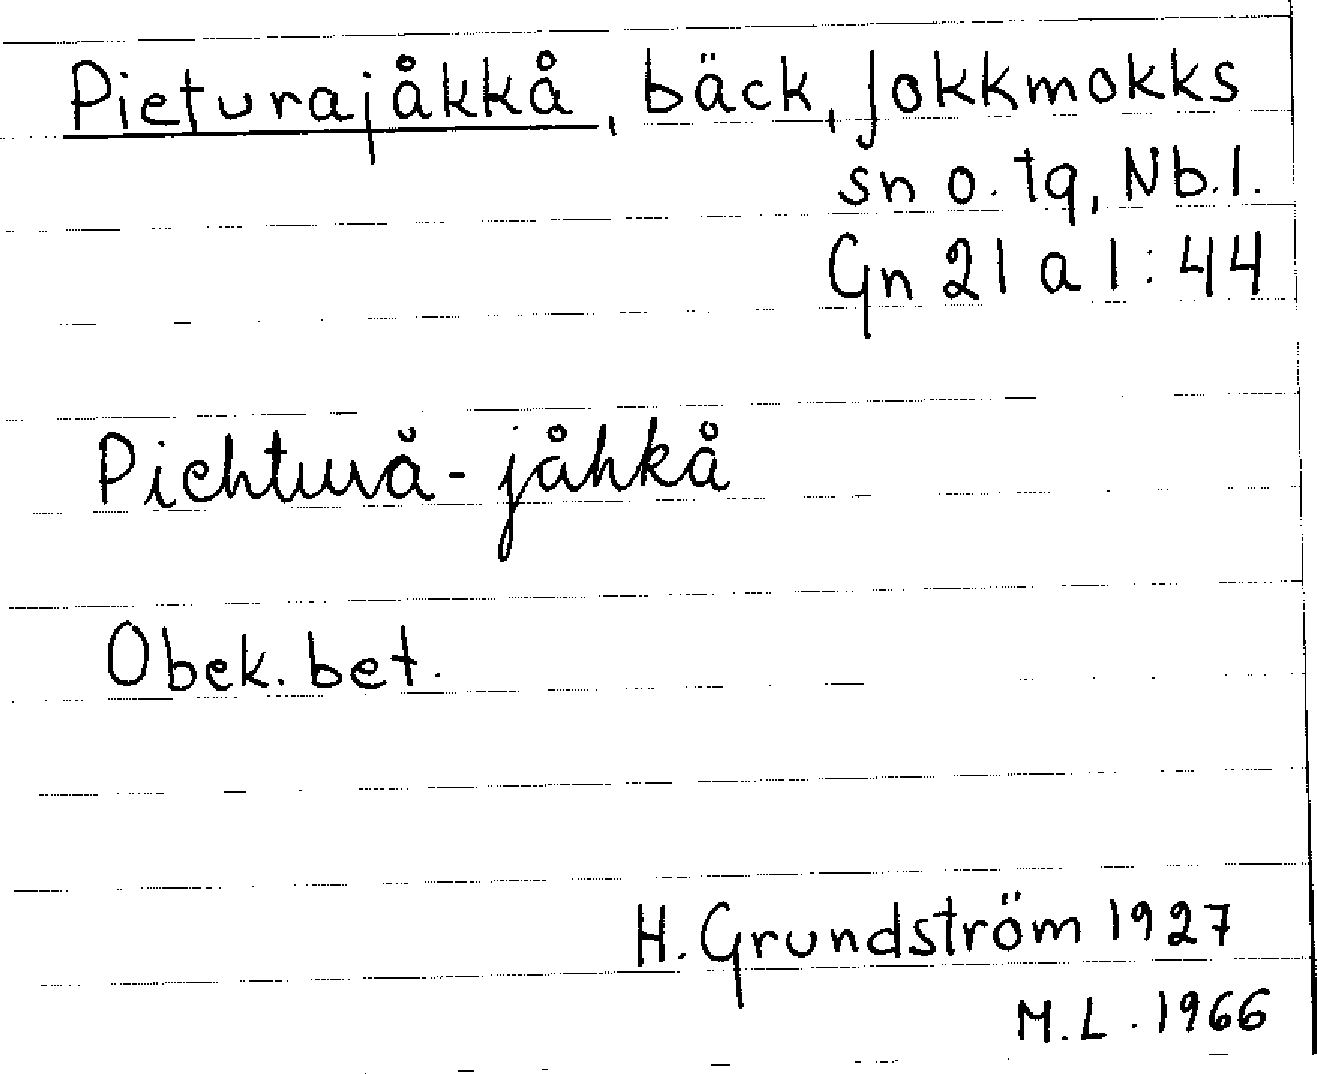 Pieturajåkkå, bäck, Jokkmokks
sn o. tg, Nb.l.
Gn 21 a 1:44
Piehtură-jåhkå
Obek. bet.
H. Grundström 1927
M.L. 1966